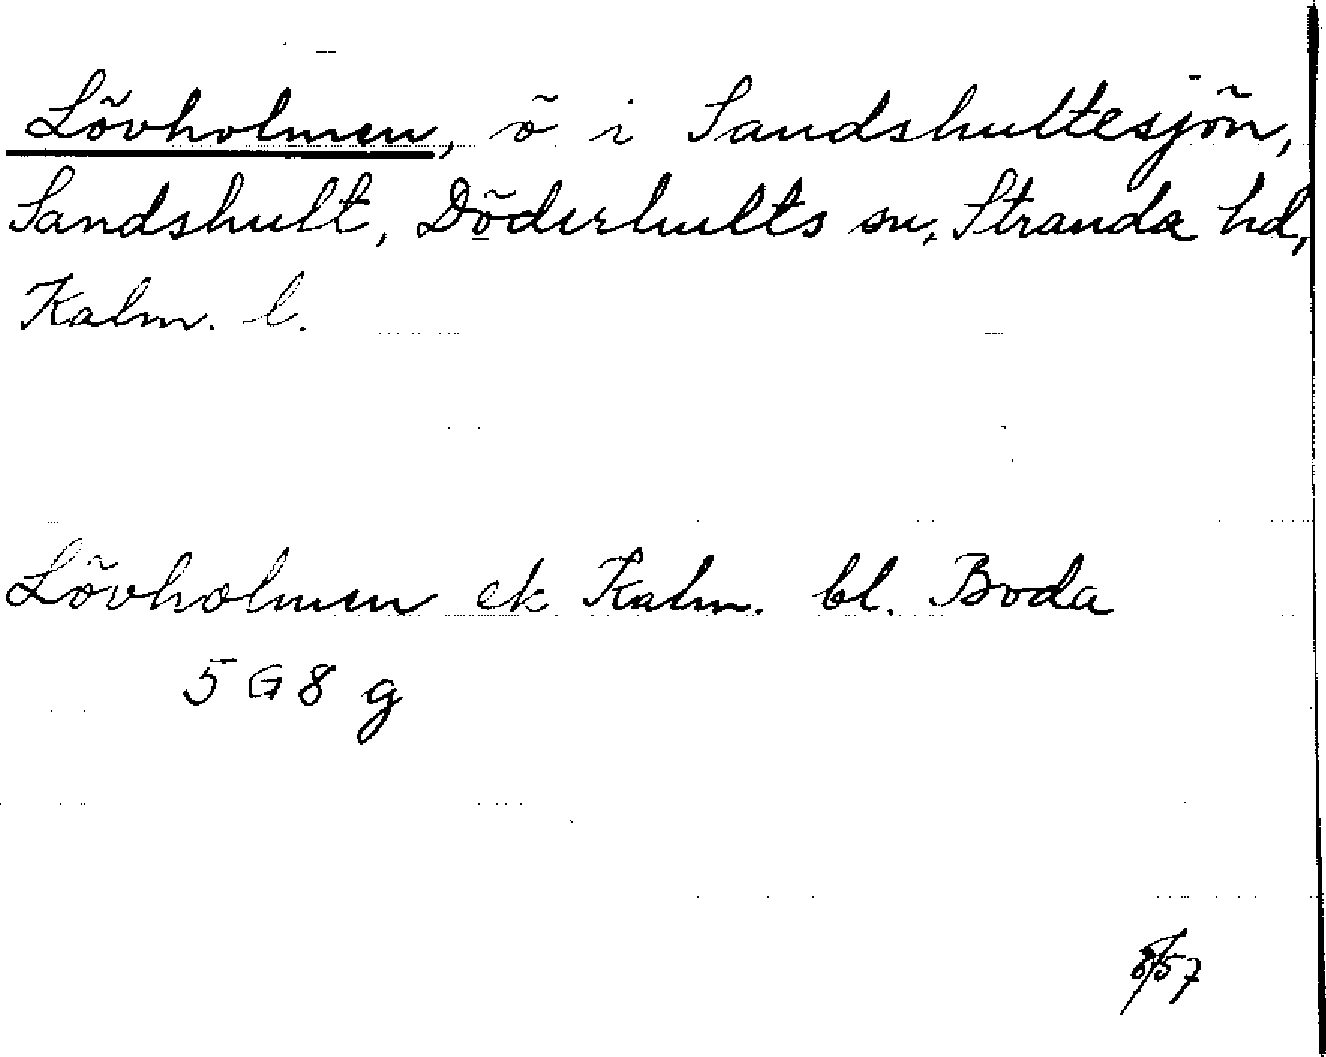 Lövholmen, ö i Sandshultesjön,
Sandshult, Döderhults sn, Stranda hd,
Kalm. l.
Lövholmen ek Kalm. bl. Boda
5 G 8 g
8/57